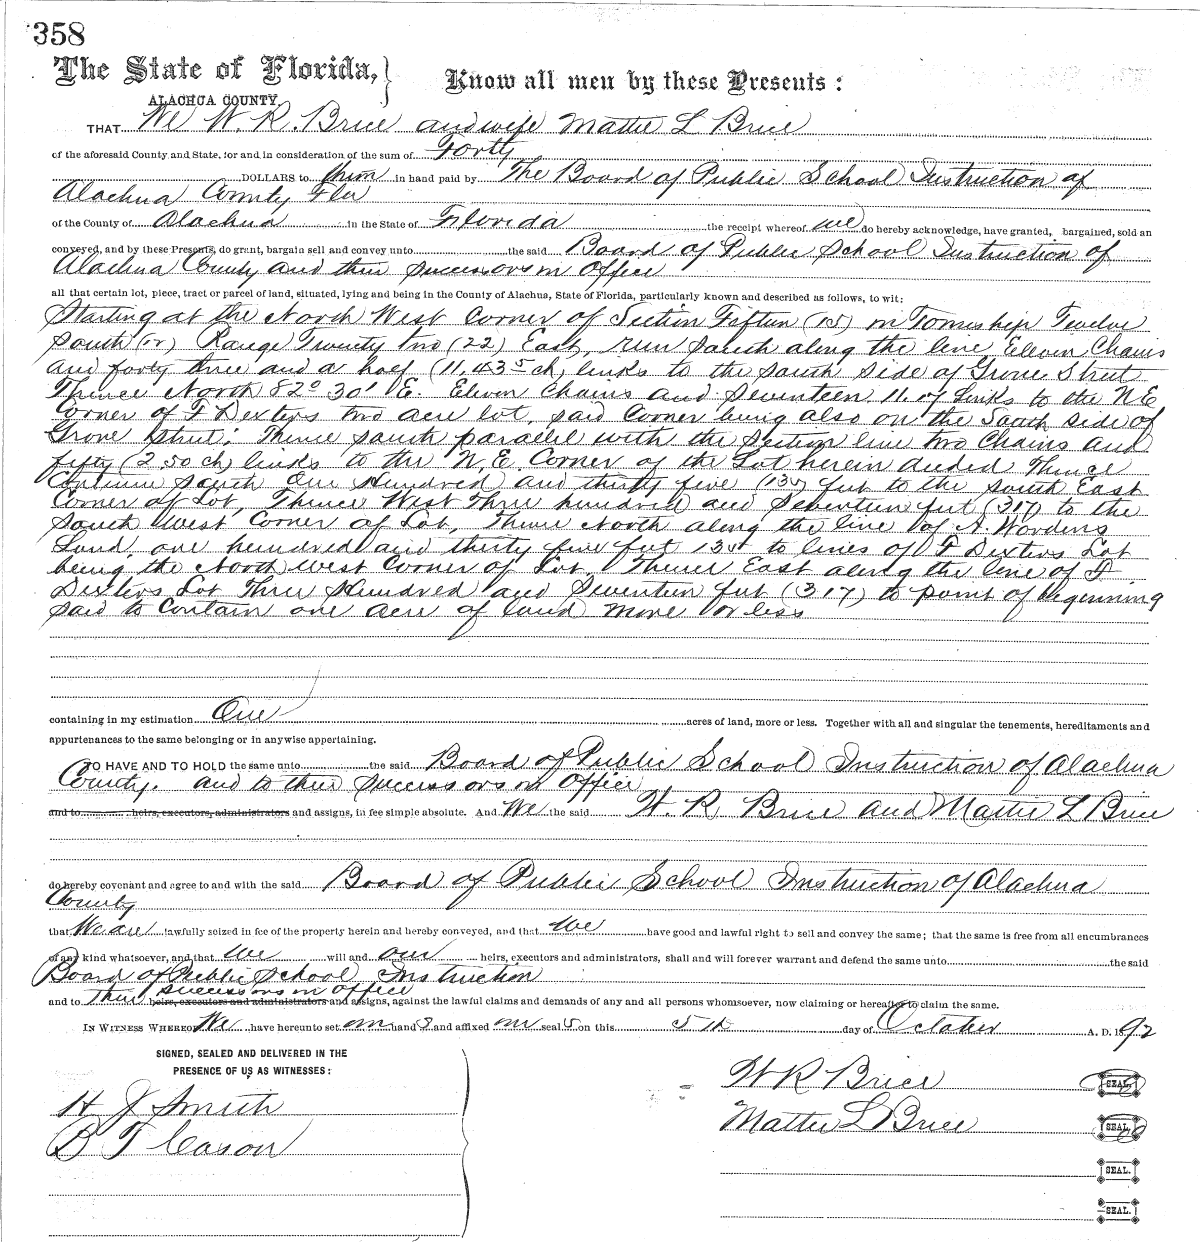 358
The State of Florida,} Know all men by these Presents:
ALACHUA COUNTY.
THAT We W. R. Brice and wife Mattie L Brice
of the aforesaid County and State, for and in consideration of the sum of Forty
DOLLARS to them in hand paid by The Board of Public School Instruction of
Alachua County Fla
of the County of Alachua in the State of Florida the receipt whereof we do hereby acknowledge, have granted, bargained, sold an
conveyed, and by these Presents, do grant, bargain sell and convey unto the said Board of Public School Instruction of
Alachua County and their successors in office
all that certain lot, piece, tract or parcel of land, situated, lying and being in the County of Alachua, State of Florida, particularly known and described as follows, to wit:
Starting at the North West Corner of Section Fifteen (15) in Township Twelve
South (12) Range Twenty two (22) East, run south along the line Eleven Chains
and forty three and a half (11.43 5 ch) links to the south side of Grove Street
Thence North 82° 30' E. Eleven Chains and Seventeen 11.17 links to the N E
Corner of F Dexters two acre lot, said corner being also on the South side of
Grove Street: Thence south parallel with the section line two Chains and
fifty (2.50 ch) links to the N. E. Corner of the Lot herein deeded Thence
Continue south One Hundred and thirty five (135) feet to the south East
Corner of Lot, Thence West Three hundred and Seventeen feet (317) to the
South west Corner of Lot, Thence North along the line of A. Wordens
Land, one hundred and thirty five feet 135 to lines of F Dexters Lot
being the North west Corner of Lot, Thence East along the line of F.
Dexters Lot Three Hundred and Seventeen feet (317) to point of beginning
said to contain one acre of land more or less
containing in my estimation One acres of land, more or less. Together with all and singular the tenements, hereditaments and
appurtenances to the same belonging or in anywise appertaining.
TO HAVE AND TO HOLD the same unto the said Board of Public School Instruction of Alachua
County. and to their successors in office
and to heirs, executors, administrators and assigns, in fee simple absolute. And We the said W. R Brice and Mattie L Brice
do hereby covenant and agree to and with the said Board of Public School Instruction of Alachua
County
that We are lawfully seized in fee of the property herein and hereby conveyed, and that we have good and lawful right to sell and convey the same; that the same is free from all encumbrances
of any kind whatsoever, and that we will and our heirs, executors and administrators, shall and will forever warrant and defend the same unto the said
Board of Public School Instruction
and to their successors in office heirs, executors and administrators and assigns, against the lawful claims and demands of any and all persons whomsoever, now claiming or hereafter to claim the same.
IN WITNESS WHEREOF, We have hereunto set our hand s and affixed our seal s on this 5th day of October A. D. 1892
SIGNED, SEALED AND DELIVERED IN THE
PRESENCE OF US AS WITNESSES:
H J Smith
B F Cason
W R Brice SEAL.
Mattie L Brice SEAL.
SEAL.
SEAL.